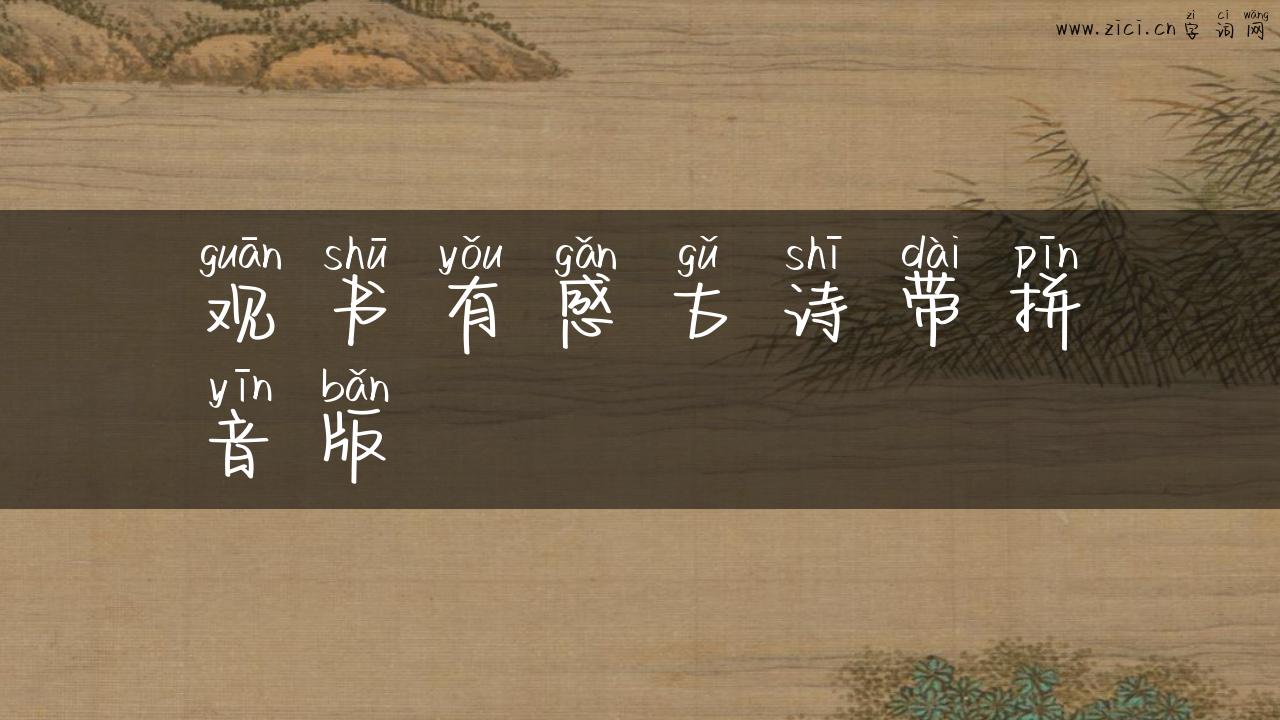 zì cí wǎng
www.zici.cn 字词网
guān shū yǒu gǎn gǔ shī dài pīn
观书有感古诗带拼
yīn bǎn
音版